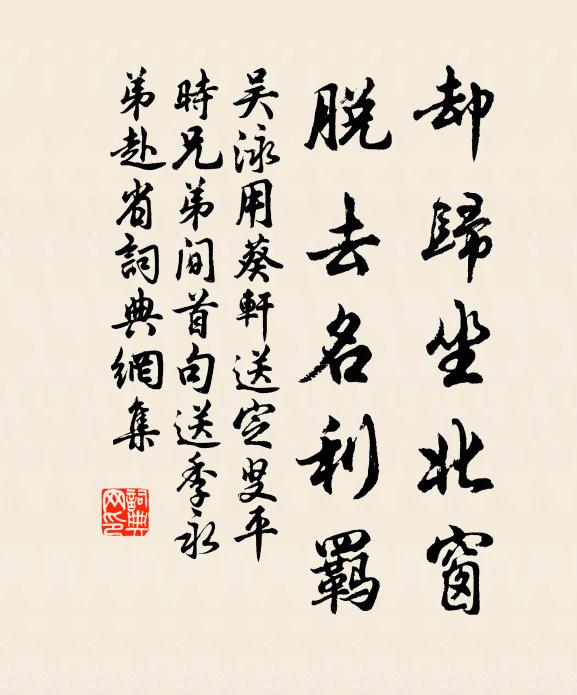 却歸坐北窗
脫去名利羈
吴泳用葵軒送定叟平
時兄弟間首句送季永
弟赴省詞典網集
詞典網印